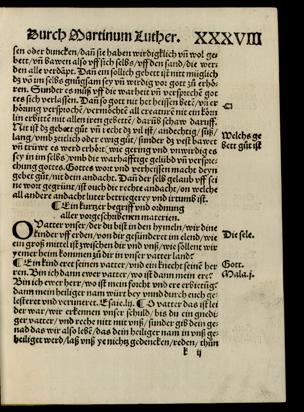 Durch Martinum Luther. XXXVIII
sen oder duncken/ dañ sie haben wirdigklich vñ wol ge
bett/ vñ bawen also vff sich selbs/ vff den sand/ die wer
den alle verdāpt. Dañ ein sollich gebett ist nitt müglich
dz vō im selbs gnůgsam sey vñ wirdig vor gott zů erhö
ren. Sunder es můß vff die warheit vñ versprechē got
tes sich verlassen. Dañ so gott nit het heissen betē/ vñ er
hörung versprochē/ vermöchtē all creaturē nit ein körn
lin erbittē mit allen iren gebettē/ Darumb schaw darff.
Nit ist dz gebett gůt vñ recht dz vil ist/ andechtig/ süß/
lang/ vmb zeitlich oder ewig gůt/ sunder dz vest bawet
vñ trüwt es werd erhört
sey in im selbs/ vmb die warhafftige gelübd vñ verspre/
chung gottes. Gottes wort vnd verheissen macht deyn
gebet gůt/ nit dein andacht. Dañ der selb glaub vff sei
ne wort gegrünt/ ist ouch die rechte andacht/ on welche
all andere andacht luter betriegerey vnd irthumb ist.
Welchs ge
bett gůt ist
¶ Ein kurtzer begriff vnd ordnung
aller vorgeschribenen materien.
O Vatter vnser/ der du bist in den hymeln/ wir dine
kinder vff erden/ von dir gesündert im elend/ wie
ein groß mittel ist zwischen dir vnd vnß/ wie söllent wir
yemer heim kommen zů dir in vnser vatter land?
Die sele.
¶ Ein kind eret seinen vatter/ vnd ein knecht seinē her
ren. Bin ich dann ewer vatter/ wo ist dann mein ere?
Bin ich ewer herr/ wo ist mein forcht vnd ere erbietūg?
dann mein heiliger nam würt bey vnnd durch euch ge/
lestert vnd veruneret. Esaie.lij. ¶ O vatter das ist lei
der war/ wir erkennen vnser schuld/ biß du ein gnedi
ger vatter/ vnd reche nitt mit vnß/ sunder gib dein ge
nad das wir also lebē/ das dein heiliger nam in vnß ge
heiliget werd/ laß vnß ye nichtz gedencken/ reden/ thůn
Gott.
Mala.j.
k ij